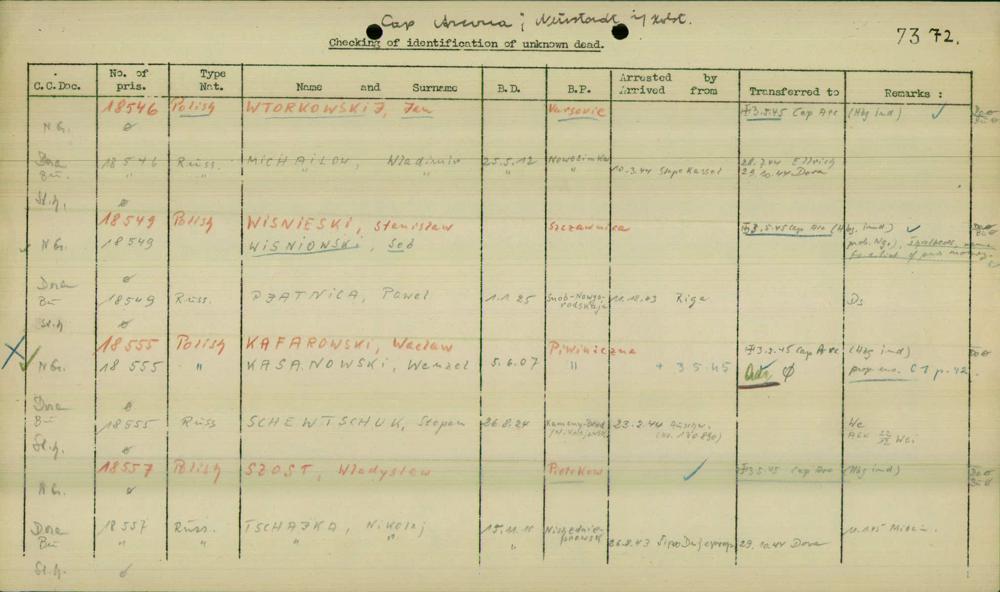 Cap Arcona; Neustadt i/ Holst.
Checking of identification of unknown dead.
73 72.
C.C.Doc. No. of pris. Type Nat. Name and Surname B.D. B.P. Arrested by Arrived from Transferred to Remarks :
18546 Polish WTORKOWSKI, Jan Varsovie 3.5.45 Cap Arc (Hbg ind)
N G.
Dora 18546 Russ. MICHAILOW, Wladimir 25.5.12 28.7.44 Ellrich
Bu. " " " " 10.3.44 Stapo Kassel 29.10.44 Dora
St.h.
18549 Polish WISNIESKI, Stanislaw Szczawnica 3.5.45 Cap Arc
N G. 18549 WISNIOWSKI, Seb
Dora
Bu 18549 Russ. PJATNICA, Pawel 1.1.25 11.11.43 Riga Ds
St.h
18555 Polish KAFAROWSKI, Waclaw Piwniczna 3.5.45 Cap Arc (Hbg ind)
N G. 18555 " KASANOWSKI, Wenzel 5.6.07 " + 3 5.45 C1 p. 42.
Dora
Bu 18555 Russ SCHEWTSCHUK, Stepan 26.8.24 23.2.44
St.h.
18557 Polish SZOST, Wladyslaw Piotrkow 3.5.45 Cap Arc (Hbg ind)
N G.
Dora 18557 Russ. TSCHAJKA, Nikolaj
Bu " " " " 26.8.43 29.10.44 Dora
St.h.